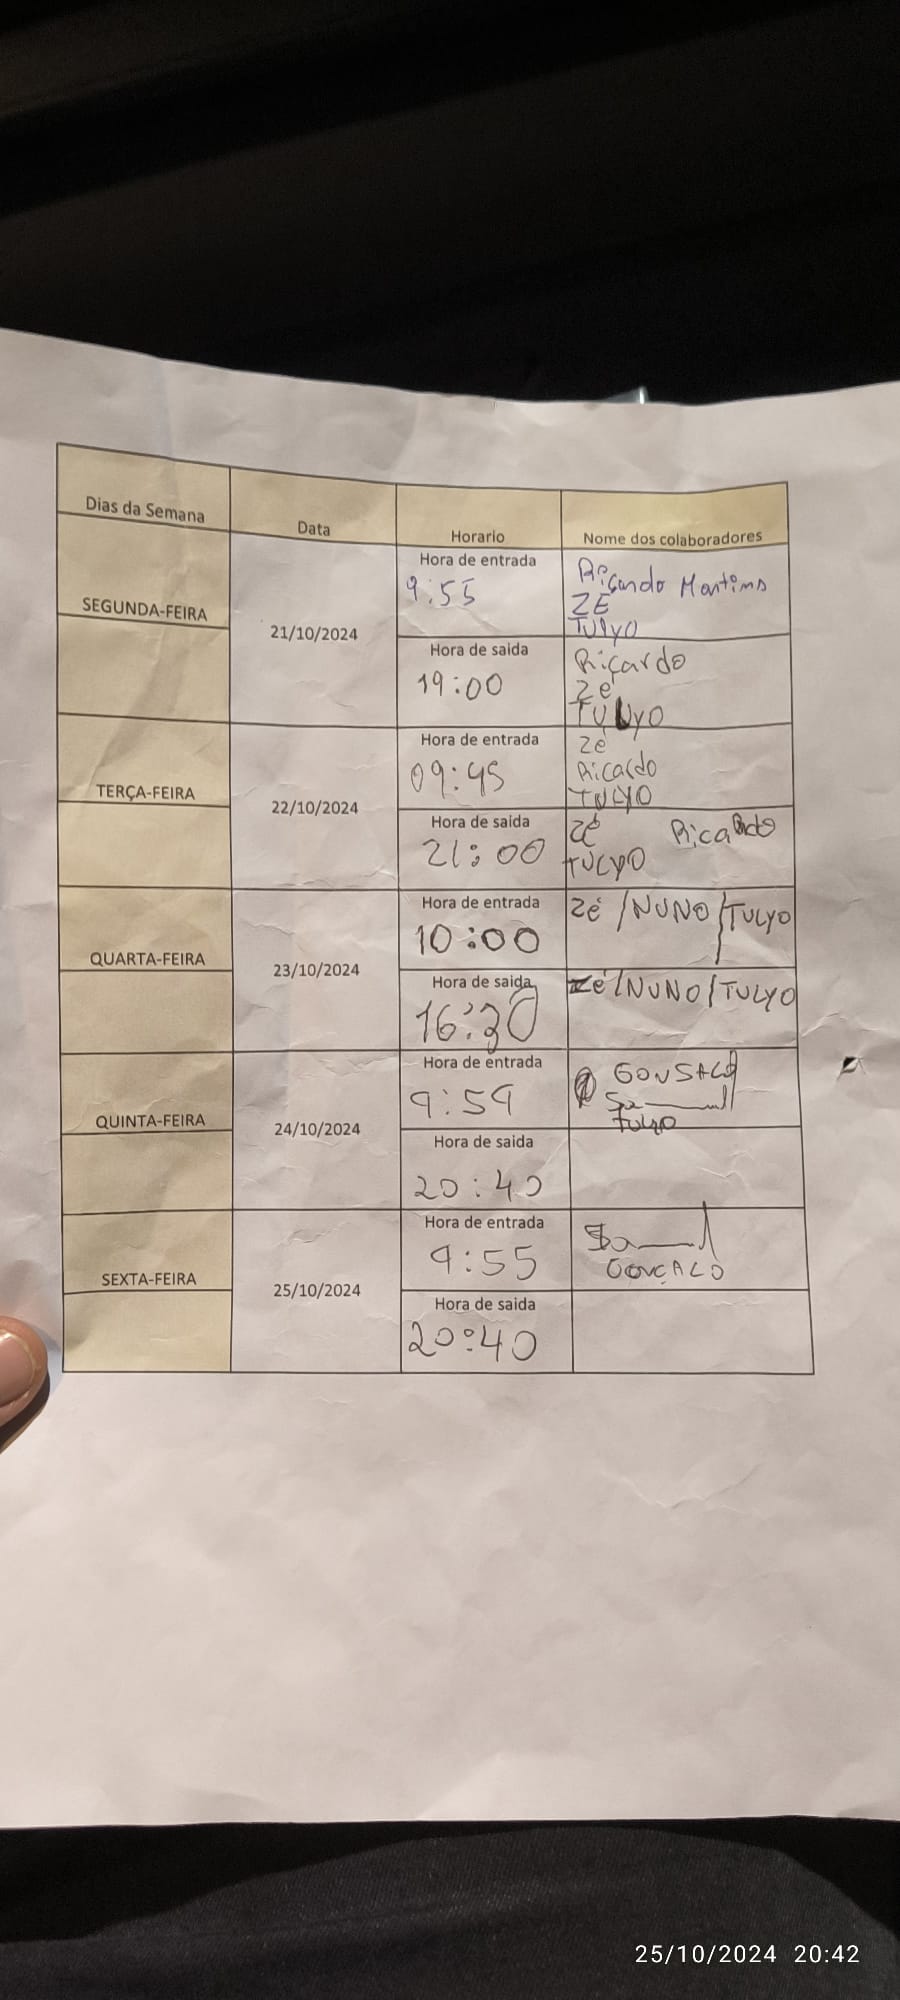 Dias da Semana Data Horario Nome dos colaboradores
SEGUNDA-FEIRA
21/10/2024
Hora de entrada
9:55
Ricardo Martins
ZÉ
TULYO
Hora de saida
19:00
Ricardo
Zé
TULYO
TERÇA-FEIRA
22/10/2024
Hora de entrada
09:45
Zé
Ricardo
TULYO
Hora de saida
21:00
Zé Ricardo
TULYO
QUARTA-FEIRA
23/10/2024
Hora de entrada
10:00
Zé /NUNO/TULYO
Hora de saida
16:30
Zé/NUNO/TULYO
QUINTA-FEIRA
24/10/2024
Hora de entrada
9:59
GONSALO
Tulyo
Hora de saida
20:40
SEXTA-FEIRA
25/10/2024
Hora de entrada
9:55
GONÇALO
Hora de saida
20:40
25/10/2024 20:42